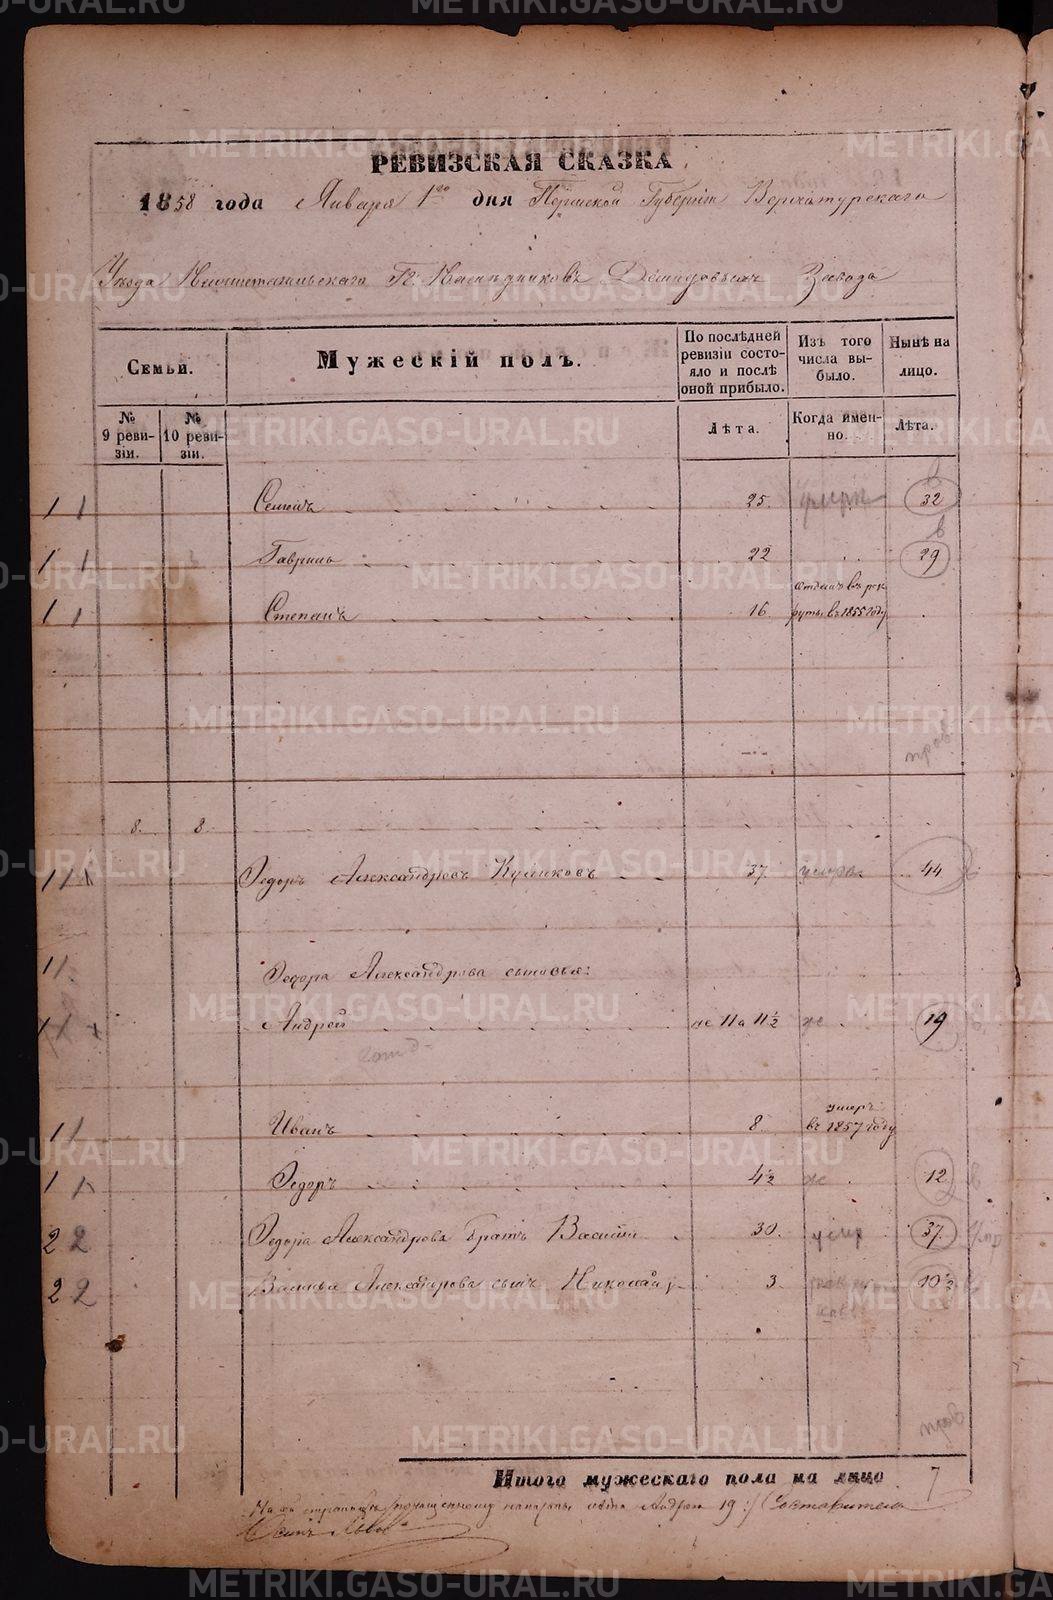 РЕВИЗСКАЯ СКАЗКА
1858 года Января 1го дня Пермской Губерніи Верхотурскаго
Уѣзда Нижнетагильскаго Гг. Наслѣдниковъ Демидовыхъ Завода
Семьи.
Мужескій полъ.
По послѣдней ревизіи состояло и послѣ оной прибыло.
Изъ того числа выбыло.
Нынѣ на лицо.
№ 9 ревизіи.
№ 10 ревизіи.
Лѣта.
Когда именно.
Лѣта.
1 1 Семенъ 25 32
1 1 Гаврило 22 29
1 1 Степанъ 16 отданъ въ рекруты въ 1855 году
8. 8.
1 1 Ѳедоръ Александровъ Куликовъ 37 умеръ 44
1 1 Ѳедора Александрова сыновья:
Андрей 11 1/2 19
1 1 Иванъ 8 умеръ въ 1857 году
1 1 Ѳедоръ 4 1/2 12
2 2 Ѳедора Александрова братъ Василій 30 умер 37
2 2 Василья Александрова сынъ Николай 3 10 1/2
Итого мужескаго пола на лицо 7
На сей страницѣ по лѣта Андрея 19:/ Составитель
METRIKI.GASO-URAL.RU